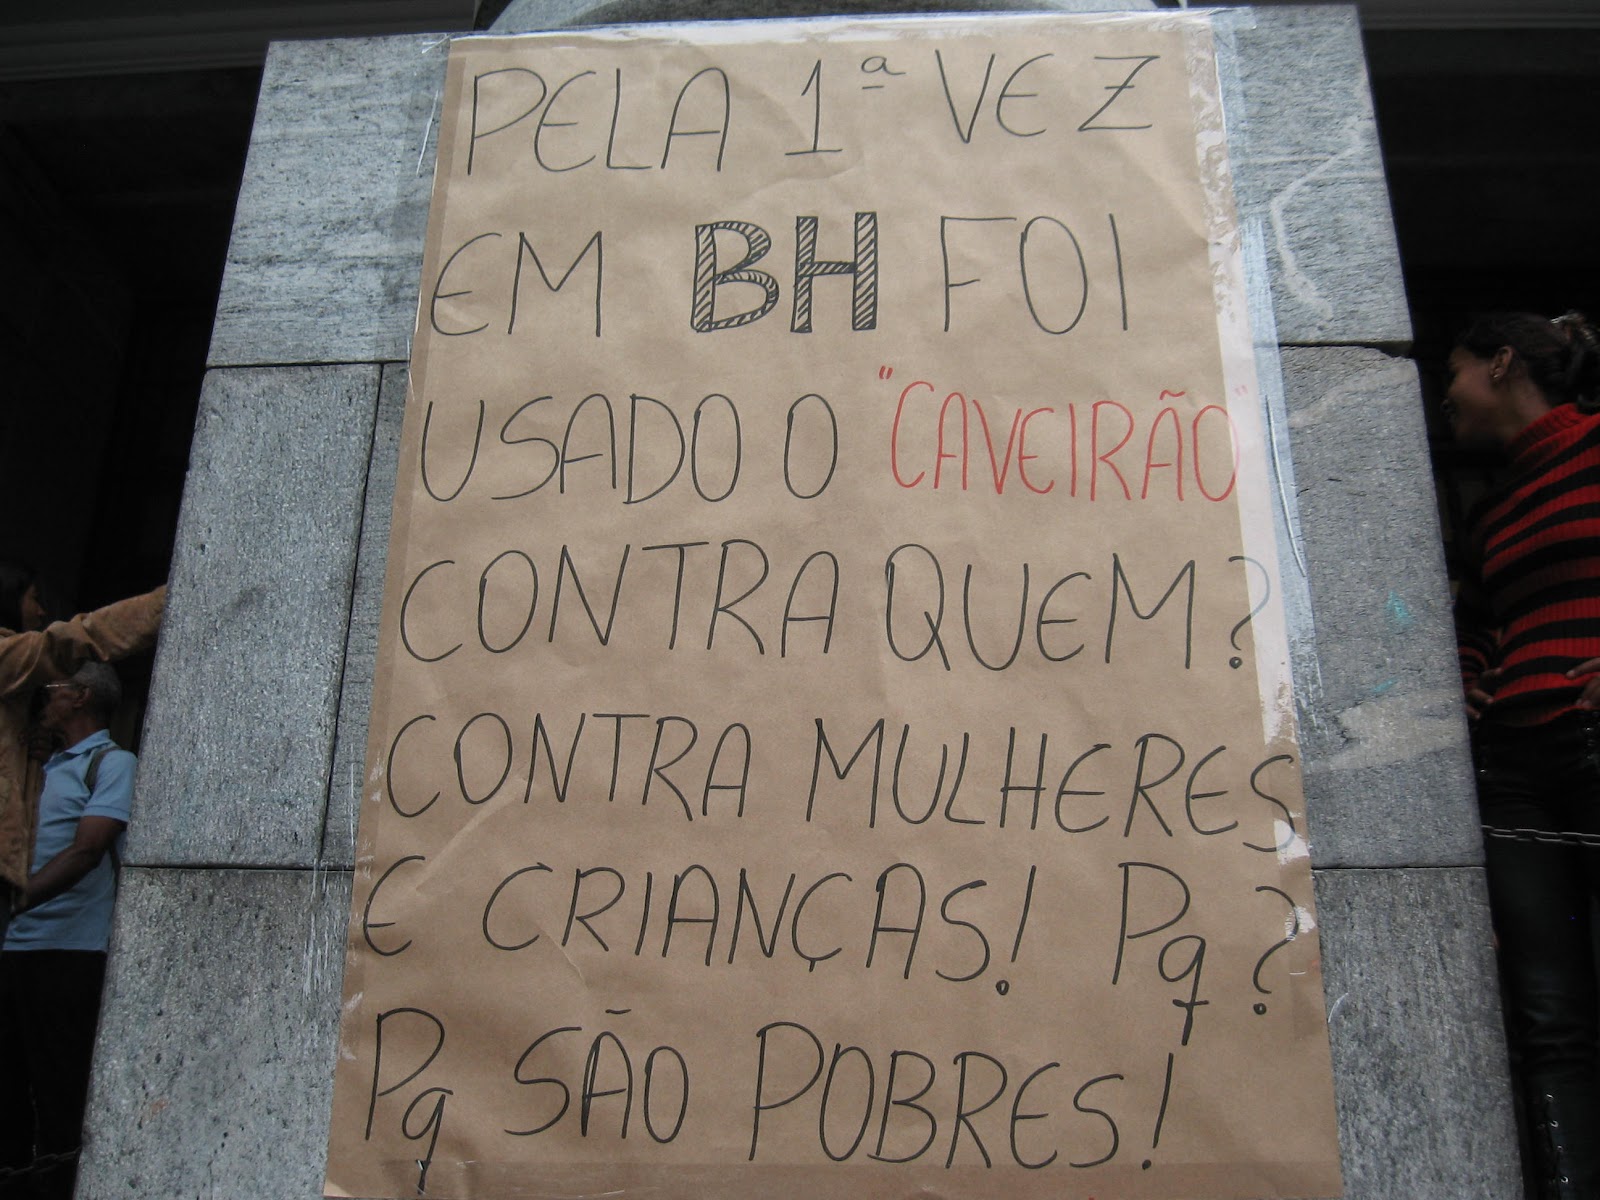 PELA 1ª VEZ
EM BH FOI
USADO O "CAVEIRÃO"
CONTRA QUEM?
CONTRA MULHERES
E CRIANÇAS! Pq?
Pq SÃO POBRES!